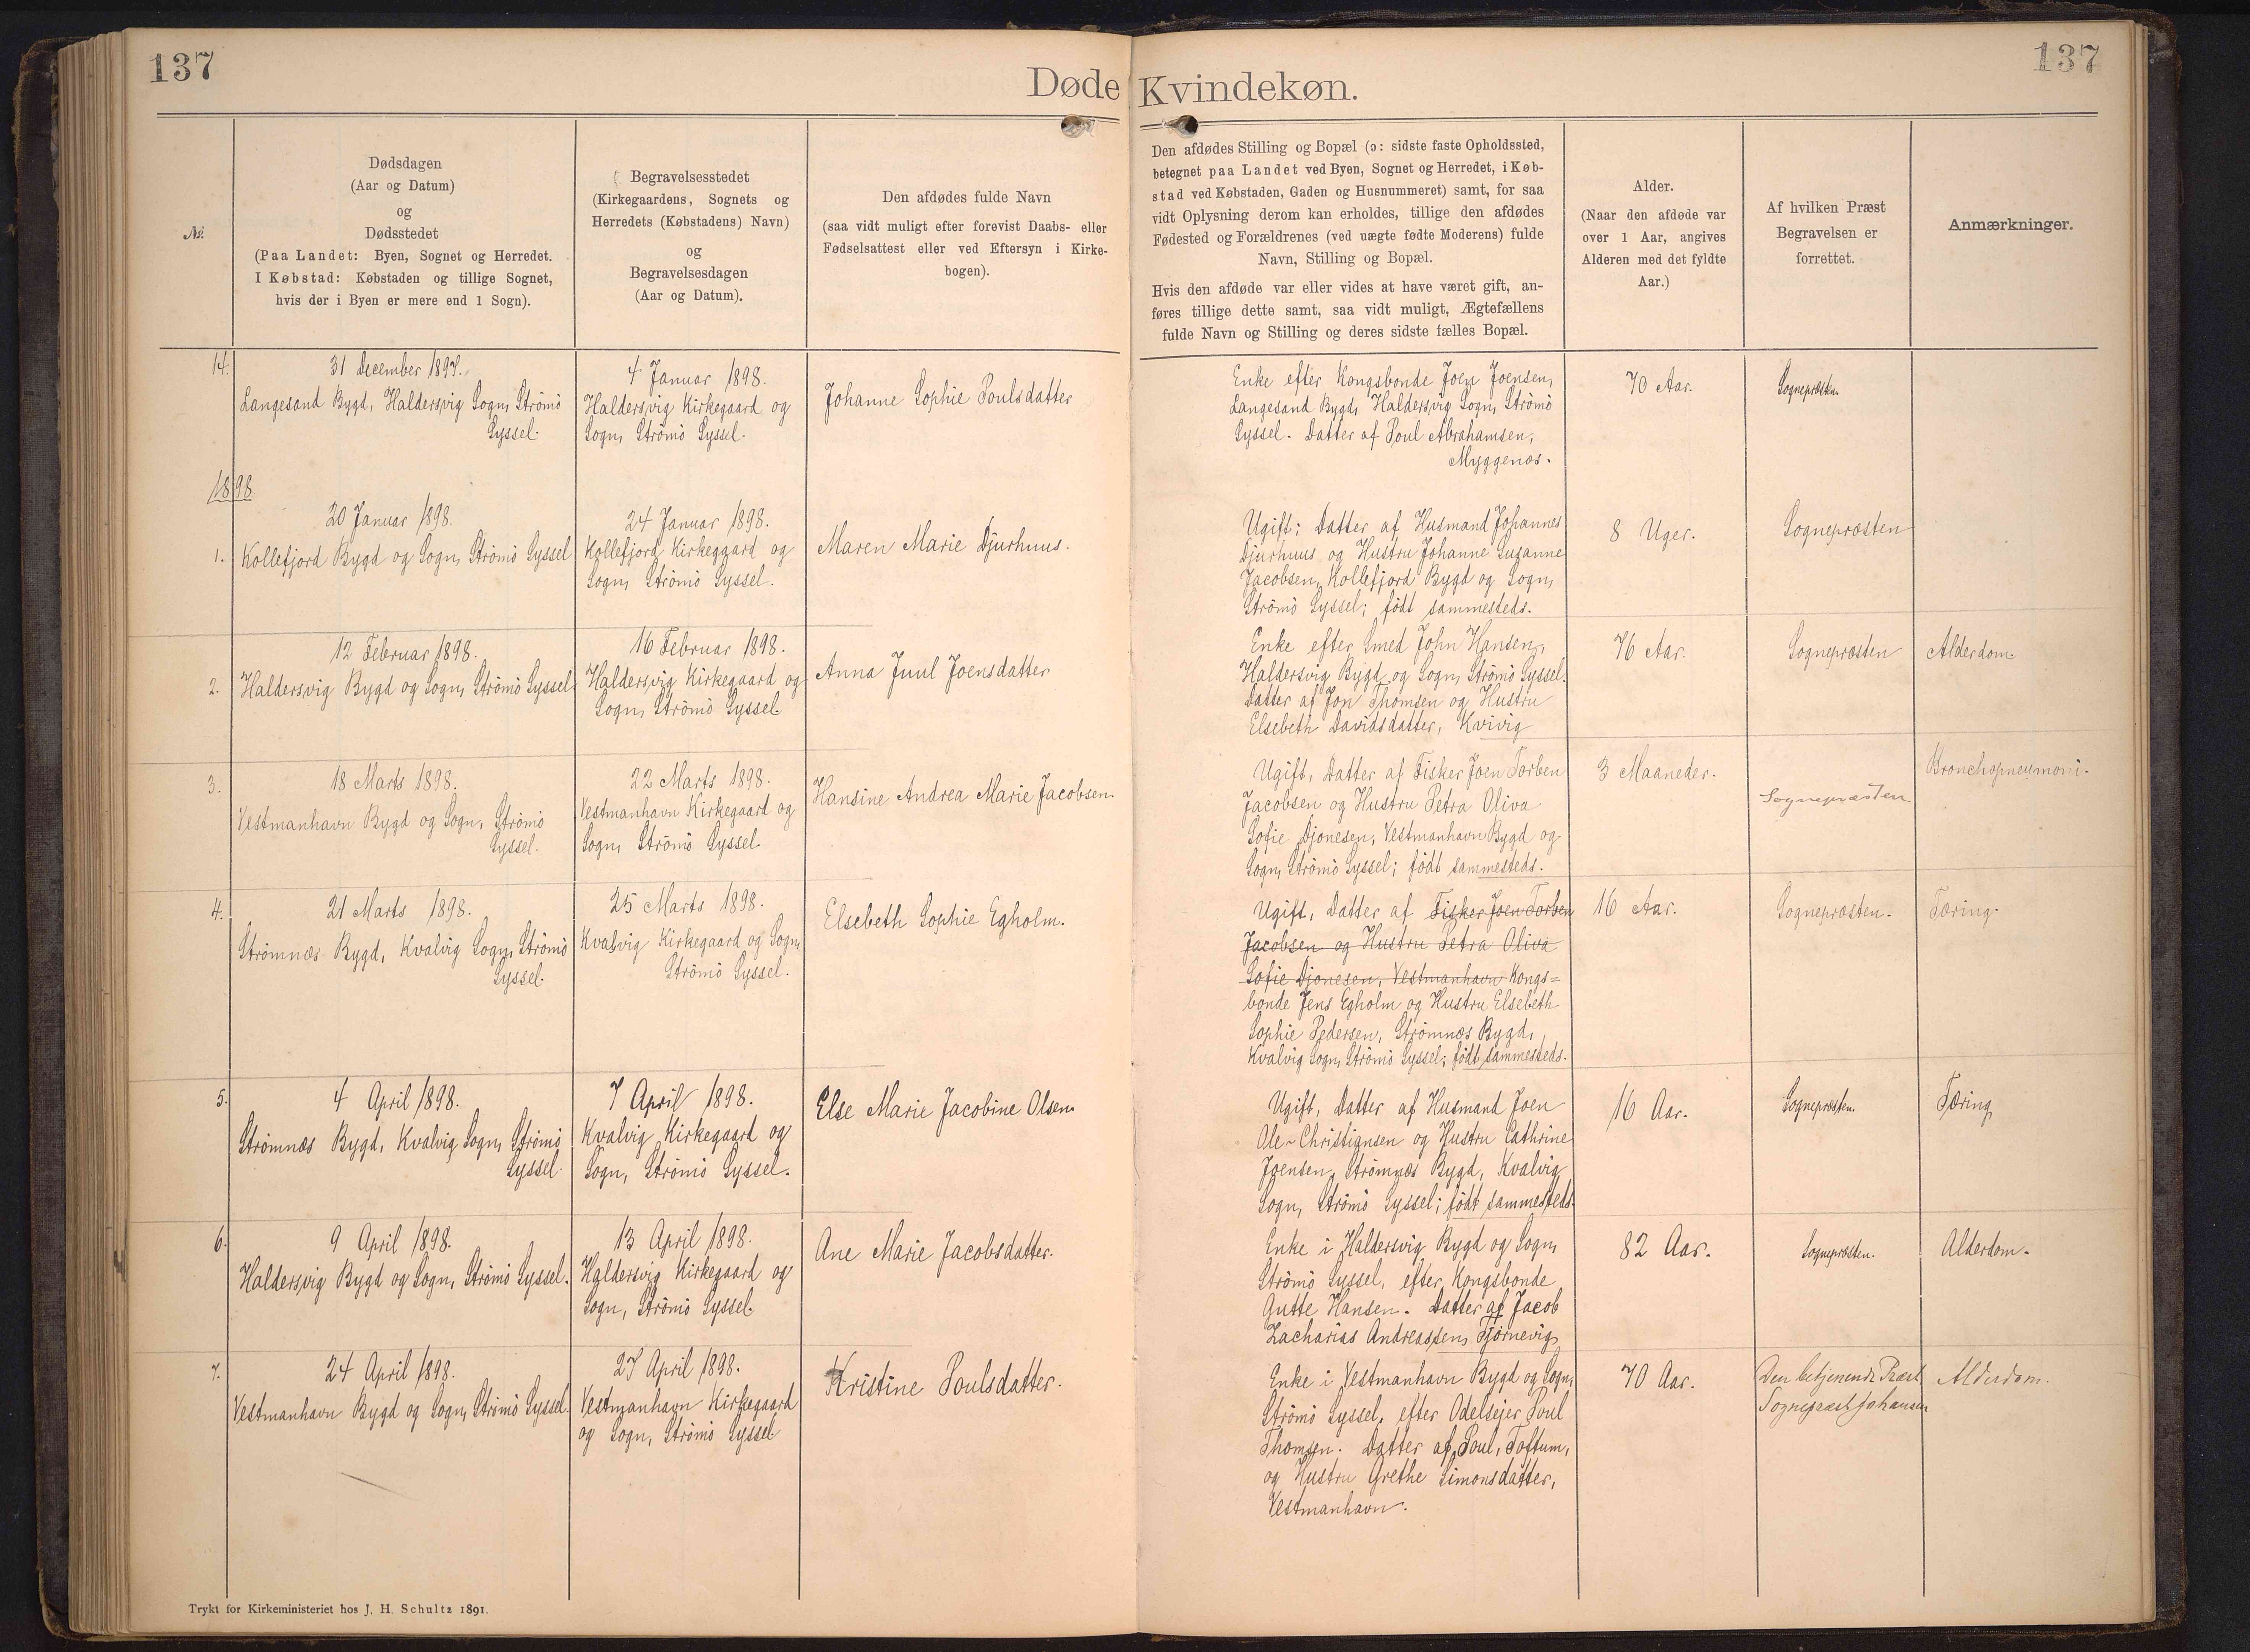 137
137
Døde Kvindekøn.
№.
Dødsdagen
(Aar og Datum)
og
Dødsstedet
(Paa Landet: Byen, Sognet og Herredet.
I Købstad: Købstaden og tillige Sognet,
hvis der i Byen er mere end 1 Sogn).
Begravelsesstedet
(Kirkegaardens, Sognets og
Herredets (Købstadens) Navn)
og
Begravelsesdagen
(Aar og Datum).
Den afdødes fulde Navn
(saa vidt muligt efter forevist Daabs- eller
Fødselsattest eller ved Eftersyn i Kirke-
bogen).
Den afdødes Stilling og Bopæl (ɔ: sidste faste Opholdssted,
betegnet paa Landet ved Byen, Sognet og Herredet, i Køb-
stad ved Købstaden, Gaden og Husnummeret) samt, for saa
vidt Oplysning derom kan erholdes, tillige den afdødes
Fødested og Forældrenes (ved uægte fødte Moderens) fulde
Navn, Stilling og Bopæl.
Hvis den afdøde var eller vides at have været gift, an-
føres tillige dette samt, saa vidt muligt, Ægtefællens
fulde Navn og Stilling og deres sidste fælles Bopæl.
Alder.
(Naar den afdøde var
over 1 Aar, angives
Alderen med det fyldte
Aar.)
Af hvilken Præst
Begravelsen er
forrettet.
Anmærkninger.
14.
31 December 1897.
Langesand Bygd, Haldersvig Sogn, Strömö
Syssel.
4 Januar 1898.
Haldersvig Kirkegaard og
Sogn, Strömö Syssel.
Johanne Sophie Poulsdatter
Enke efter Kongsbonde Joen Joensen,
Langesand Bygd, Haldersvig Sogn, Strömö
Syssel. Datter af Poul Abrahamsen,
Myggenæs.
70 Aar.
Sognepræsten.
1898
1.
20 Januar 1898.
Kollefjord Bygd og Sogn, Strömö Syssel
24 Januar 1898.
Kollefjord Kirkegaard og
Sogn, Strömö Syssel.
Maren Marie Djurhuus.
Ugift; Datter af Husmand Johannes
Djurhuus og Hustru Johanne Susanne
Jacobsen, Kollefjord Bygd og Sogn,
Strömö Syssel; født sammesteds.
8 Uger.
Sognepræsten
2.
12 Februar 1898.
Haldersvig Bygd og Sogn, Strömö Syssel
16 Februar 1898.
Haldersvig Kirkegaard og
Sogn, Strömö Syssel
Anna Juul Joensdatter
Enke efter Smed John Hansen,
Haldersvig Bygd og Sogn, Strömö Syssel.
Datter af Jon Thomsen og Hustru
Elsebeth Davidsdatter, Kvivig
76 Aar.
Sognepræsten
Alderdom
3.
18 Marts 1898.
Vestmanhavn Bygd og Sogn, Strömö
Syssel.
22 Marts 1898.
Vestmanhavn Kirkegaard og
Sogn, Strömö Syssel.
Hansine Andrea Marie Jacobsen.
Ugift, Datter af Fisker Joen Torben
Jacobsen og Hustru Petra Oliva
Sofie Djonesen, Vestmanhavn Bygd og
Sogn, Strömö Syssel; født sammesteds.
3 Maaneder.
Sognepræsten.
Bronchopneumoni.
4.
21 Marts 1898.
Strömnæs Bygd, Kvalvig Sogn, Strömö
Syssel.
25 Marts 1898.
Kvalvig Kirkegaard og Sogn,
Strömö Syssel.
Elsebeth Sophie Egholm.
Ugift, Datter af Fisker Joen Torben
Jacobsen og Hustru Petra Oliva
Sofie Djonesen, Vestmanhavn Kongs=
bonde Jens Egholm og Hustru Elsebeth
Sophie Pedersen, Strömnæs Bygd,
Kvalvig Sogn, Strömö Syssel; født sammesteds.
16 Aar.
Sognepræsten.
Tæring.
5.
4 April 1898.
Strömnæs Bygd, Kvalvig Sogn, Strömö
Syssel.
7 April 1898.
Kvalvig Kirkegaard og
Sogn, Strömö Syssel.
Else Marie Jacobine Olsen.
Ugift, Datter af Husmand Joen
Ole Christiansen og Hustru Cathrine
Joensen, Strömnæs Bygd, Kvalvig
Sogn, Strömö Syssel; født sammesteds.
16 Aar.
Sognepræsten.
Tæring
6.
9 April 1898.
Haldersvig Bygd og Sogn, Strömö Syssel.
13 April 1898.
Haldersvig Kirkegaard og
Sogn, Strömö Syssel.
Ane Marie Jacobsdatter.
Enke i Haldersvig Bygd og Sogn,
Strömö Syssel, efter Kongsbonde
Gutte Hansen. Datter af Jacob
Zacharias Andreassen, Tjørnevig
82 Aar.
Sognepræsten.
Alderdom.
7.
24 April 1898.
Vestmanhavn Bygd og Sogn, Strömö Syssel.
27 April 1898.
Vestmanhavn Kirkegaard
og Sogn, Strömö Syssel
Kristine Poulsdatter.
Enke i Vestmanhavn Bygd og Sogn,
Strömö Syssel, efter Odelsejer Poul
Thomsen. Datter af Poul, Toftum,
og Hustru Grethe Simonsdatter,
Vestmanhavn.
70 Aar.
Den betjenende Præst
Sognepræst Johansen
Alderdom.
Trykt for Kirkeministeriet hos J. H. Schultz 1891.